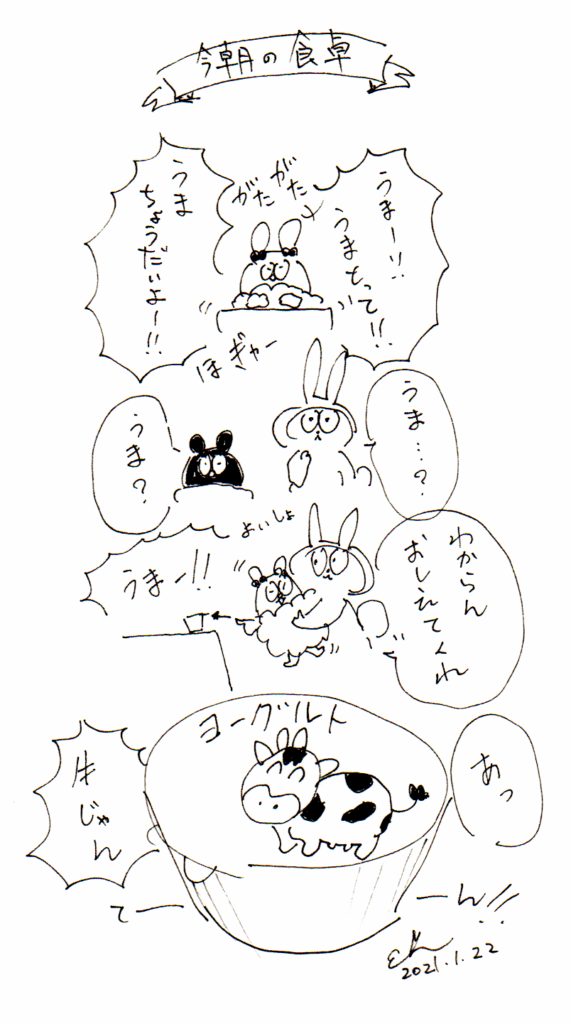 今朝の食卓
うまーッ!!
うまとって!!
がたがた
うま
ちょうだいよー!!
ほぎゃー
うま…?
うま?
わからん
おしえてくれ
よいしょ
うまー!!
ヨーグルト
あっ
牛じゃん
てーーん!!
2021.1.22